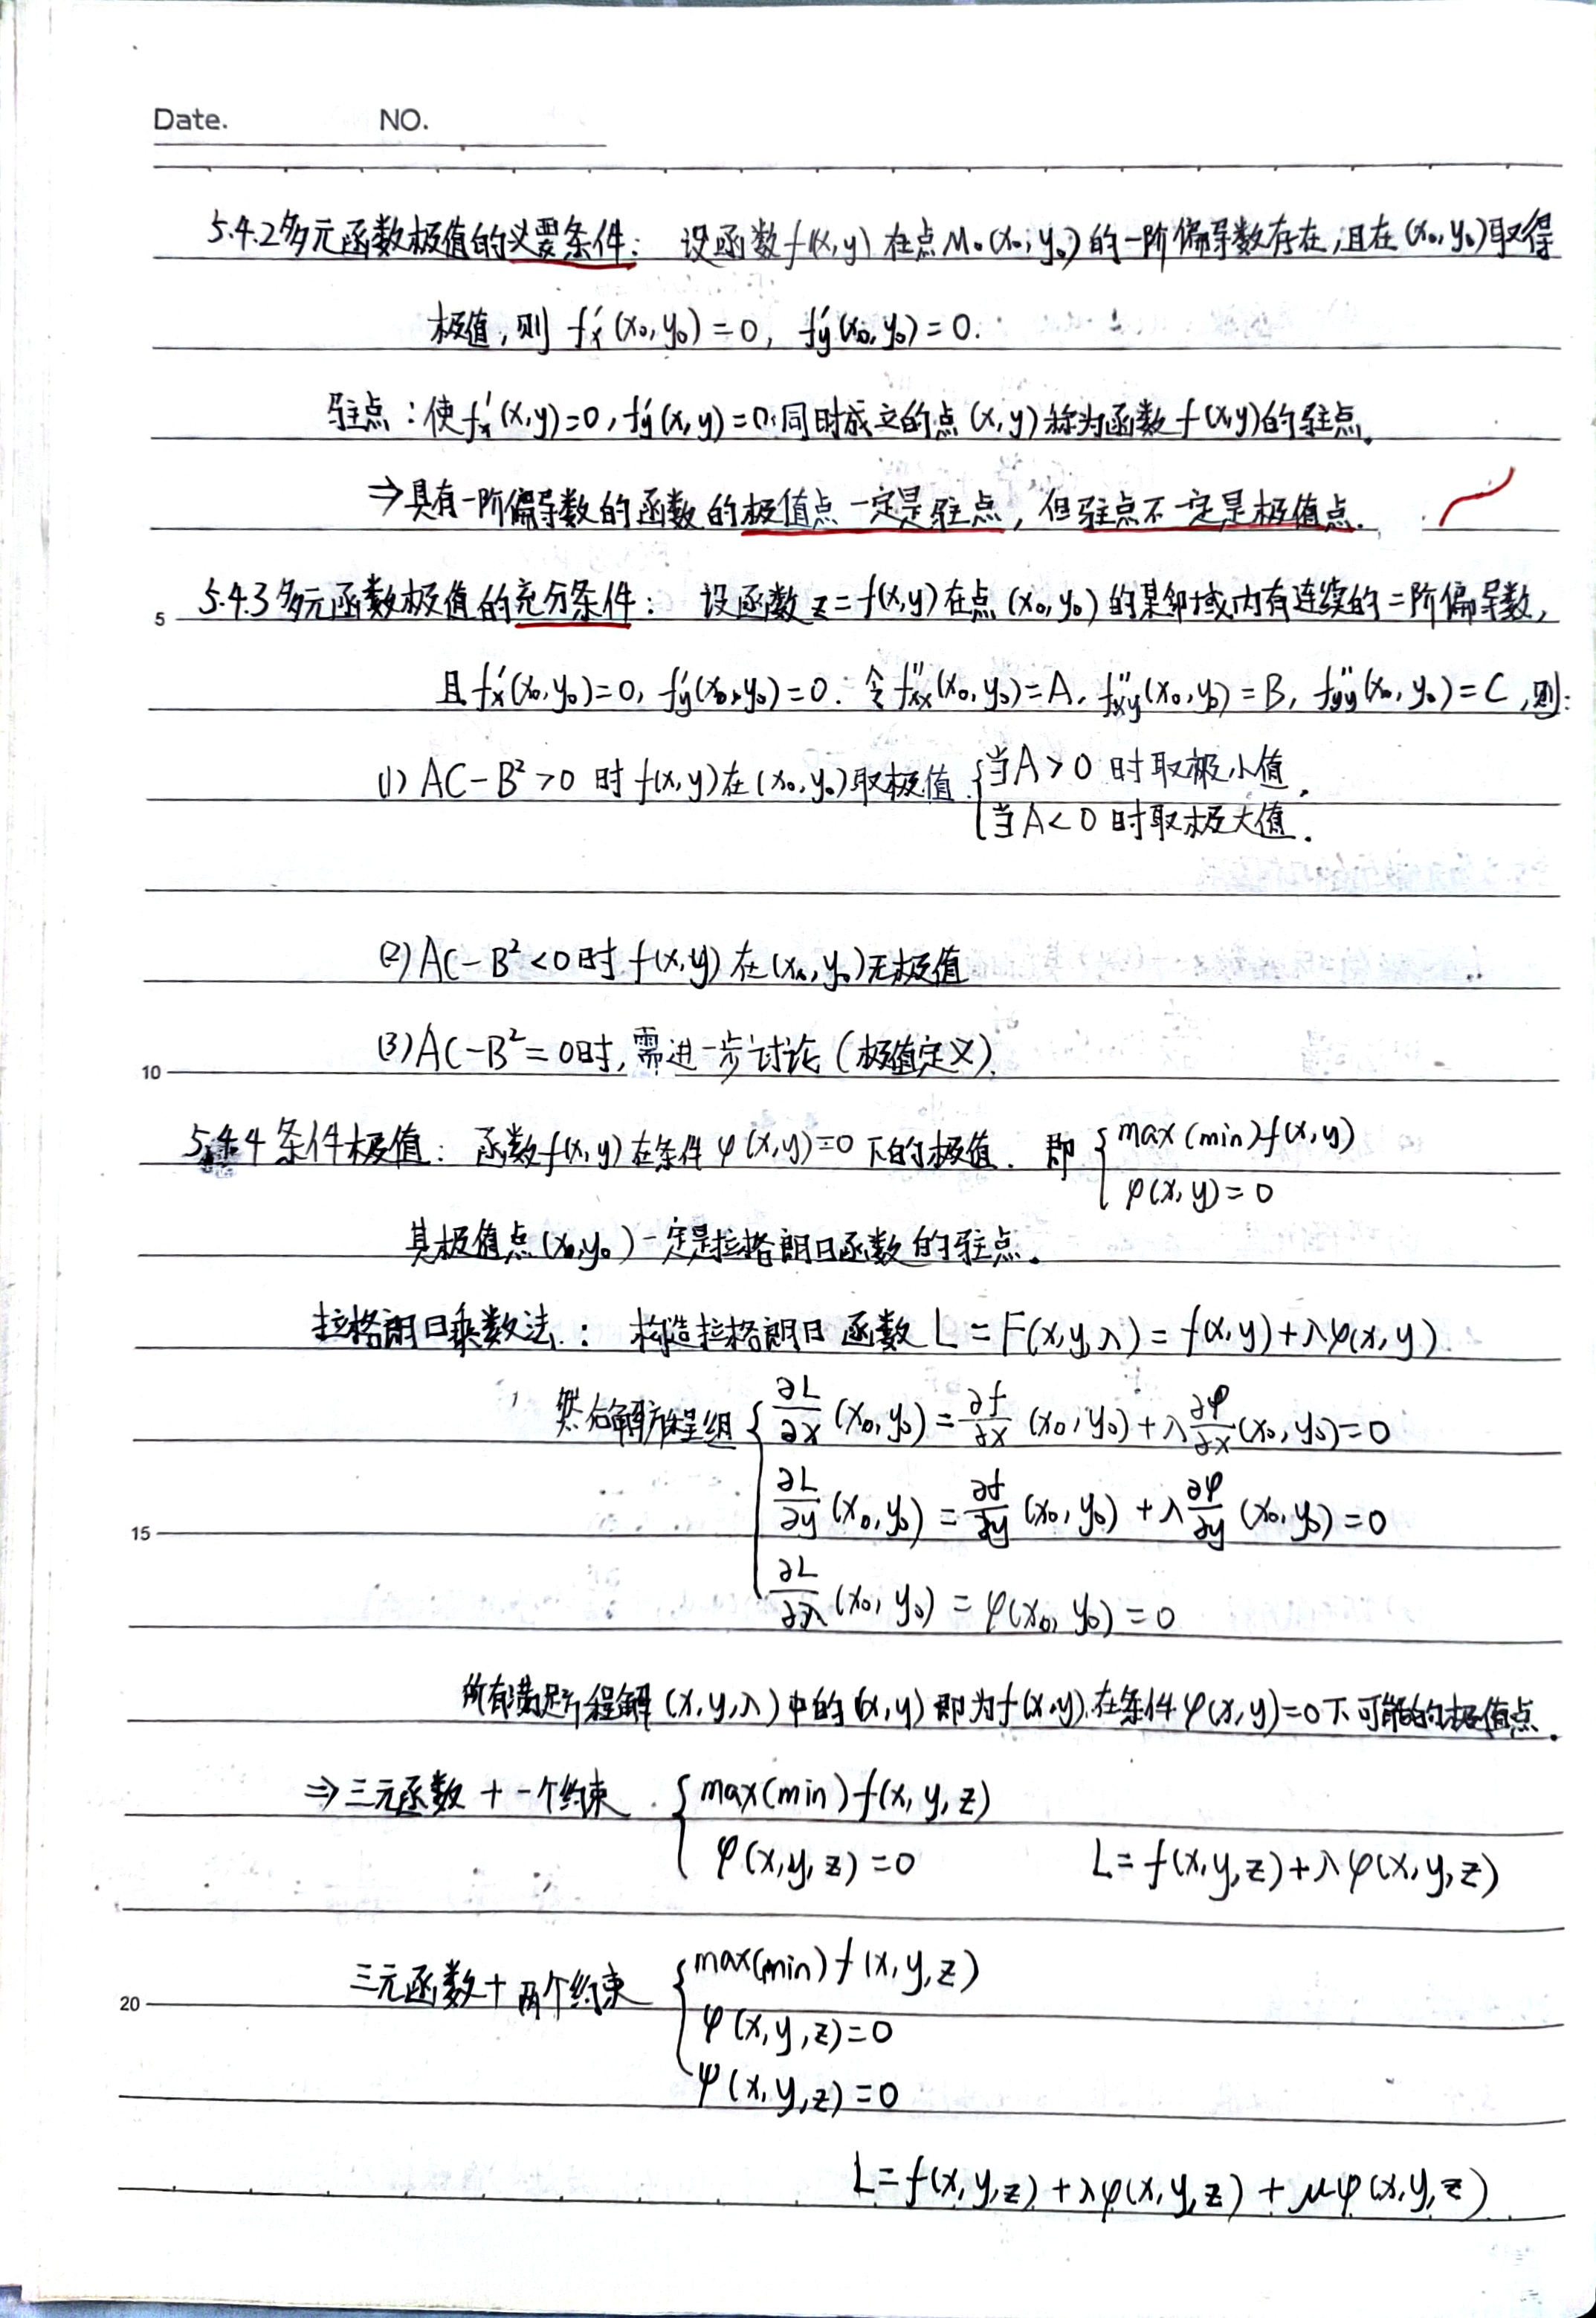 Date. NO.
5.4.2 多元函数极值的必要条件: 设函数 f(x,y) 在点 M₀(x₀,y₀) 的一阶偏导数存在,且在(x₀,y₀)取得
极值,则 fₓ′(x₀,y₀)=0, f′y(x₀,y₀)=0.
驻点:使fₓ′(x,y)=0,f′y(x,y)=0同时成立的点(x,y)称为函数f(x,y)的驻点。
⇒具有一阶偏导数的函数的极值点一定是驻点,但驻点不一定是极值点.
5 5.4.3 多元函数极值的充分条件: 设函数z=f(x,y)在点(x₀,y₀)的某邻域内有连续的二阶偏导数,
且fₓ′(x₀,y₀)=0, f′y(x₀,y₀)=0. 令f″xx(x₀,y₀)=A, f″xy(x₀,y₀)=B, f″yy(x₀,y₀)=C,则:
(1) AC-B²>0 时 f(x,y)在(x₀,y₀)取极值 {当A>0 时取极小值.
当A<0 时取极大值.
(2) AC-B²<0时 f(x,y)在(x₀,y₀)无极值
10 (3) AC-B²=0时,需进一步讨论(极值定义).
5.4.4 条件极值: 函数f(x,y)在条件 φ(x,y)=0 下的极值. 即 {max(min)f(x,y)
φ(x,y)=0
其极值点(x₀,y₀)一定是拉格朗日函数的驻点。
拉格朗日乘数法: 构造拉格朗日函数 L=F(x,y,λ)=f(x,y)+λφ(x,y)
然后解方程组 {∂L/∂x(x₀,y₀)=∂f/∂x(x₀,y₀)+λ∂φ/∂x(x₀,y₀)=0
15 ∂L/∂y(x₀,y₀)=∂f/∂y(x₀,y₀)+λ∂φ/∂y(x₀,y₀)=0
∂L/∂λ(x₀,y₀)=φ(x₀,y₀)=0
所有满足方程解(x,y,λ)中的(x,y)即为f(x,y)在条件φ(x,y)=0下可能的极值点.
⇒三元函数+一个约束 {max(min)f(x,y,z)
φ(x,y,z)=0 L=f(x,y,z)+λφ(x,y,z)
20 三元函数+两个约束 {max(min)f(x,y,z)
φ(x,y,z)=0
ψ(x,y,z)=0
L=f(x,y,z)+λφ(x,y,z)+μψ(x,y,z)